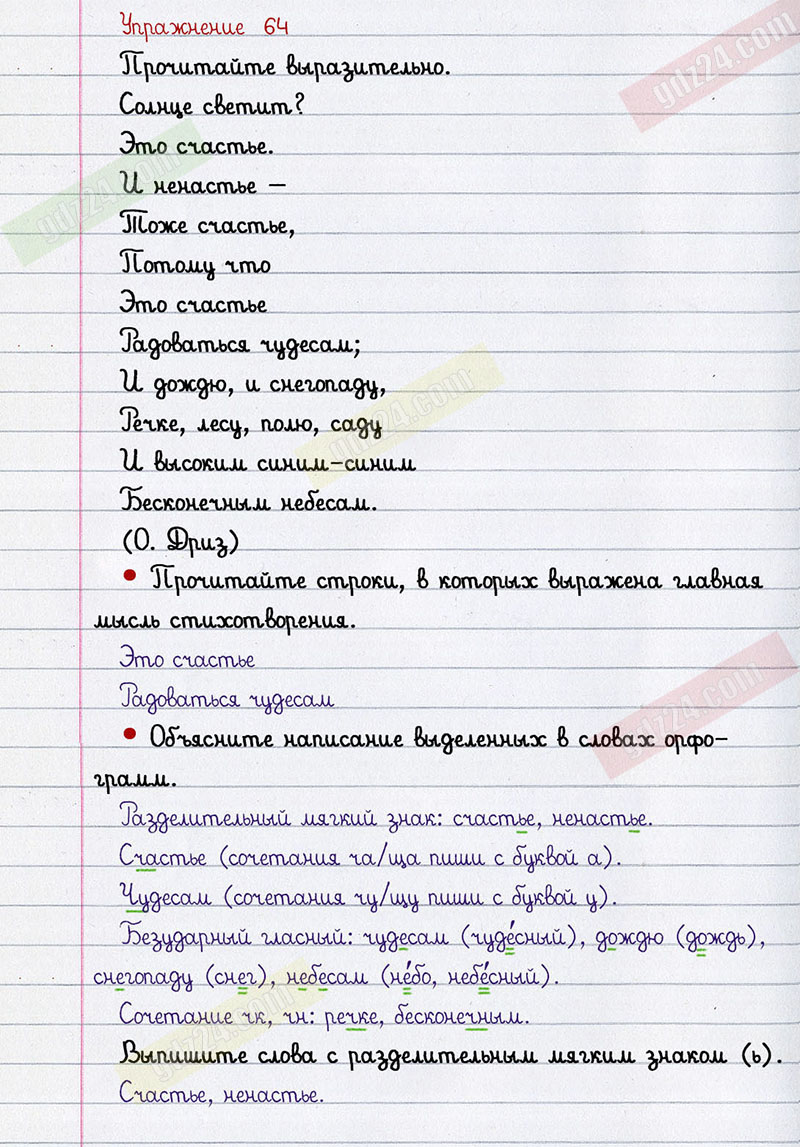 Упражнение 64
Прочитайте выразительно.
Солнце светит?
Это счастье.
И ненастье –
Тоже счастье,
Потому что
Это счастье
Радоваться чудесам;
И дождю, и снегопаду,
Речке, лесу, полю, саду
И высоким синим-синим
Бесконечным небесам.
(О. Дриз)
• Прочитайте строки, в которых выражена главная
мысль стихотворения.
Это счастье
Радоваться чудесам
• Объясните написание выделенных в словах орфо-
грамм.
Разделительный мягкий знак: счастье, ненастье.
Счастье (сочетания ча/ща пиши с буквой а).
Чудесам (сочетания чу/щу пиши с буквой у).
Безударный гласный: чудесам (чуде́сный), дождю (дождь),
снегопаду (снег), небесам (не́бо, небе́сный).
Сочетание чк, чн: речке, бесконечным.
Выпишите слова с разделительным мягким знаком (ь).
Счастье, ненастье.
gdz24.com
gdz24.com
gdz24.com
gdz24.com
gdz24.com